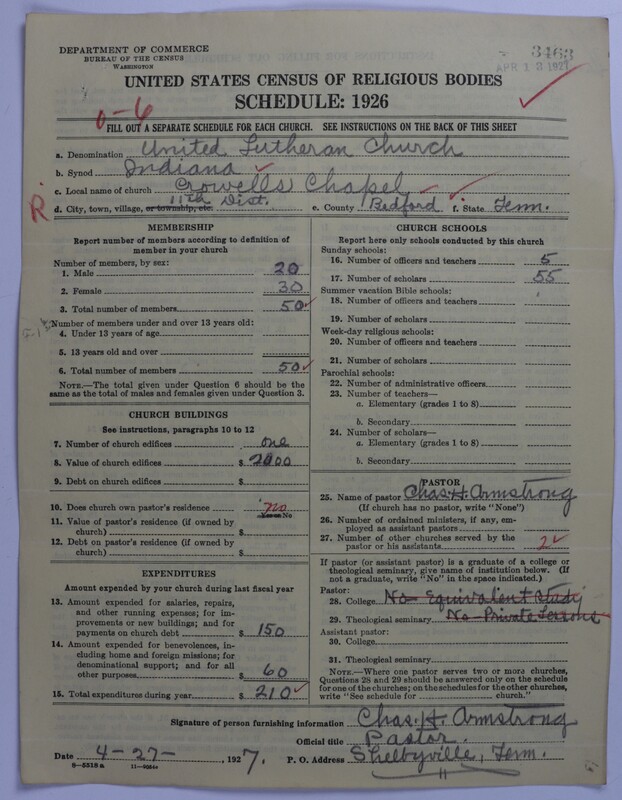 DEPARTMENT OF COMMERCE
BUREAU OF THE CENSUS
WASHINGTON
3463
APR 13 1927
UNITED STATES CENSUS OF RELIGIOUS BODIES
SCHEDULE: 1926
0-6
FILL OUT A SEPARATE SCHEDULE FOR EACH CHURCH. SEE INSTRUCTIONS ON THE BACK OF THIS SHEET
a. Denomination United Lutheran Church
b. Synod Indiana
c. Local name of church Crowells Chapel
R.
d. City, town, village, or township, etc. 11th Dist. e. County Bedford f. State Tenn.
MEMBERSHIP
Report number of members according to definition of member in your church
Number of members, by sex:
1. Male 20
2. Female 30
3. Total number of members 50
Number of members under and over 13 years old:
4. Under 13 years of age
5. 13 years old and over
6. Total number of members 50
NOTE.—The total given under Question 6 should be the
same as the total of males and females given under Question 3.
CHURCH BUILDINGS
See instructions, paragraphs 10 to 12
7. Number of church edifices one
8. Value of church edifices $ 2000
9. Debt on church edifices $
10. Does church own pastor's residence no
Yes or No
11. Value of pastor's residence (if owned by
church) $
12. Debt on pastor's residence (if owned by
church) $
EXPENDITURES
Amount expended by your church during last fiscal year
13. Amount expended for salaries, repairs,
and other running expenses; for im-
provements or new buildings; and for
payments on church debt $ 150
14. Amount expended for benevolences, in-
cluding home and foreign missions; for
denominational support; and for all
other purposes $ 60
15. Total expenditures during year $ 210
CHURCH SCHOOLS
Report here only schools conducted by this church
Sunday schools:
16. Number of officers and teachers 5
17. Number of scholars 55
Summer vacation Bible schools:
18. Number of officers and teachers
19. Number of scholars
Week-day religious schools:
20. Number of officers and teachers
21. Number of scholars
Parochial schools:
22. Number of administrative officers
23. Number of teachers—
a. Elementary (grades 1 to 8)
b. Secondary
24. Number of scholars—
a. Elementary (grades 1 to 8)
b. Secondary
PASTOR
25. Name of pastor Chas. H. Armstrong
(If church has no pastor, write "None")
26. Number of ordained ministers, if any, em-
ployed as assistant pastors
27. Number of other churches served by the
pastor or his assistants 2
If pastor (or assistant pastor) is a graduate of a college or
theological seminary, give name of institution below. (If
not a graduate, write "No" in the space indicated.)
Pastor:
28. College No - Equivalent Study
29. Theological seminary No - Private Lessons
Assistant pastor:
30. College
31. Theological seminary
NOTE.—Where one pastor serves two or more churches,
Questions 28 and 29 should be answered only on the schedule
for one of the churches; on the schedules for the other churches,
write "See schedule for church."
Signature of person furnishing information Chas. H. Armstrong
Official title Pastor.
Date 4-27-, 1927. P. O. Address Shelbyville, Tenn.